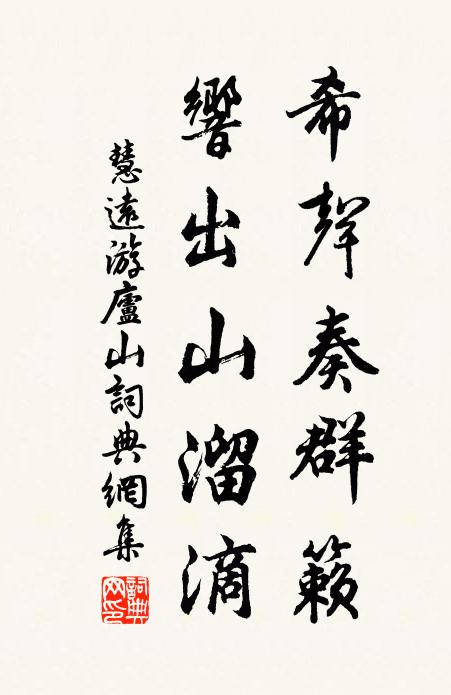 希聲奏群籟
響出山溜滴
慧遠游廬山詞典網集
詞典網印